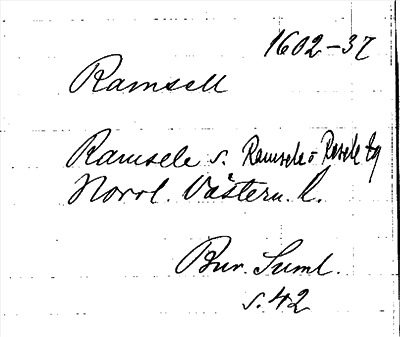 1602-37
Ramsell
Ramsele s. Ramsele o Resele tg
Norrl. Västern. l.
Bur. Suml.
s. 42